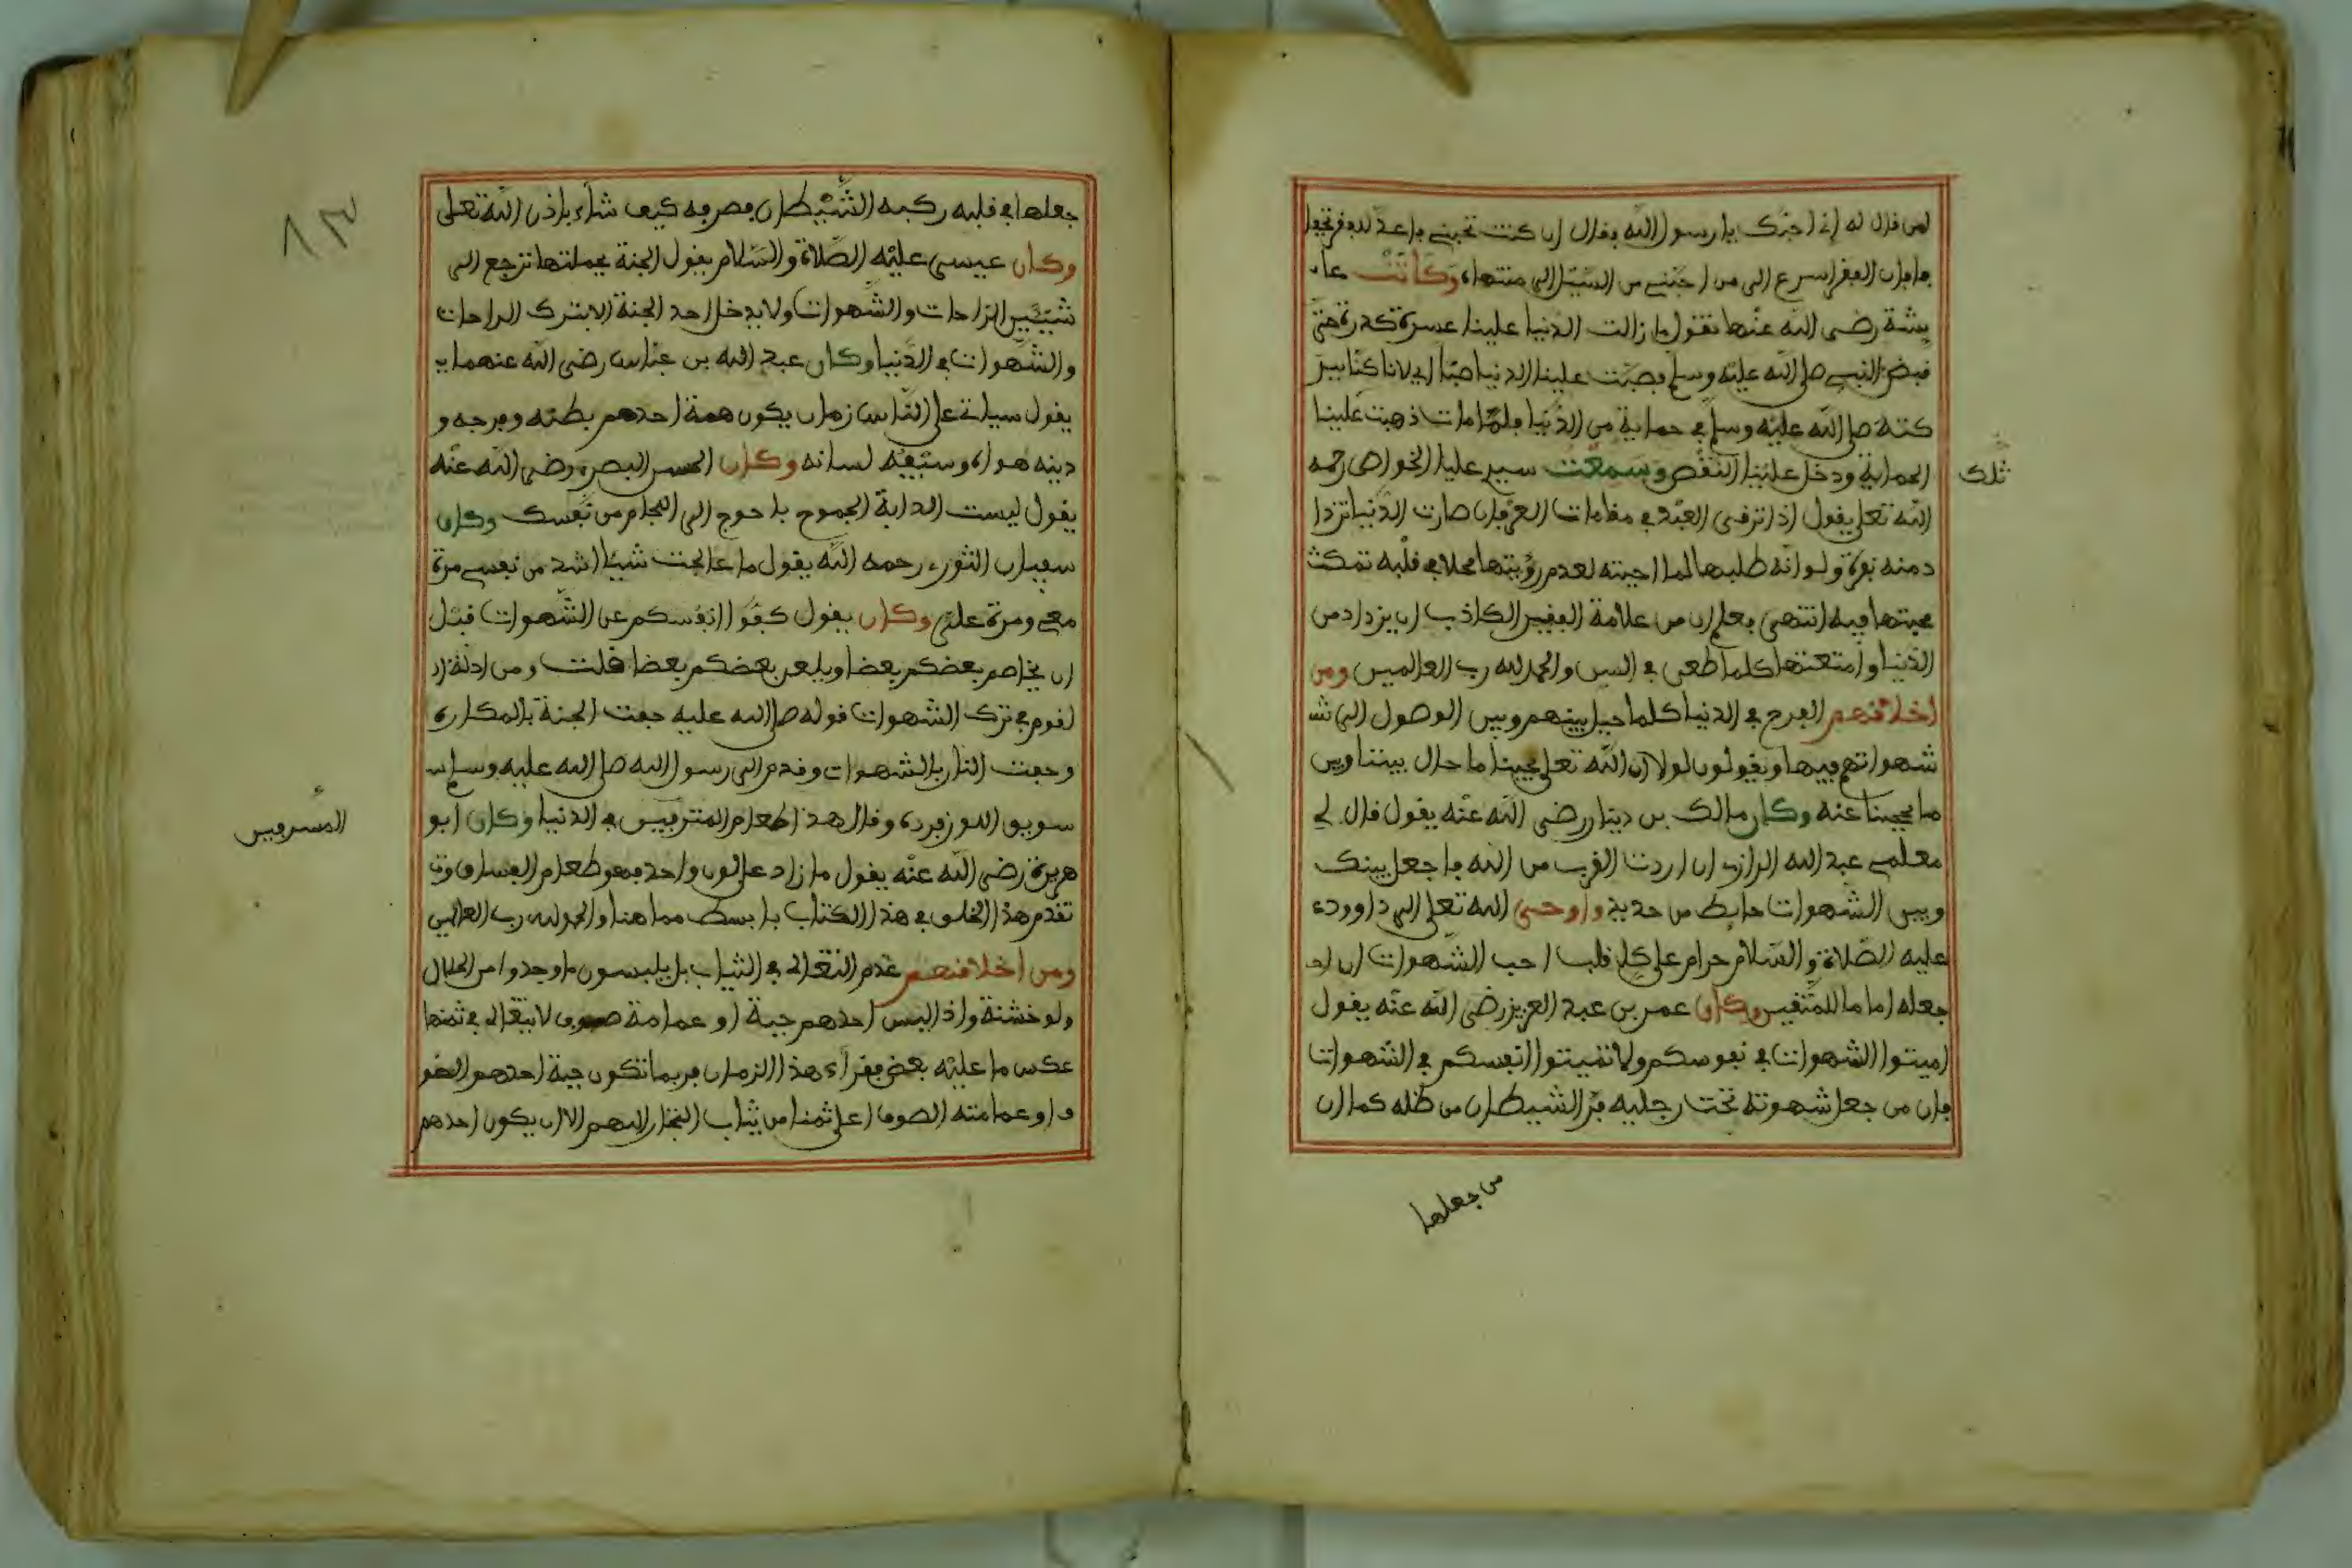 لمن قال له إني احبك يا رسول الله فقال ان كنت تحبني فاعد للفقر تجفا
فا فإن الفقر اسرع الى من احبني من السيل الى منتهاه وكانت عا
يشة رضي الله عنها تقول ما زالت الدنيا علينا عسرة كدرة حتى
قبض النبي صلى الله عليه وسلم فصبت علينا الدنيا صبا اي لانا كنا ببر
كته صلى الله عليه وسلم في حماية من الدنيا فلما مات ذهبت علينا
تلك
الحماية ودخل علينا النقص وسمعت سيدي عليا الخواص رحمه
الله تعلى يقول اذا ترقى العبد في مقامات العرفان صارت الدنيا تزدا
د منه نفرة ولو انه طلبها لما اجبته لعدم رؤيتها محلا في قلبه تمكث
محبتها فيه انتهى فعلم ان من علامة الفقير الكاذب ان يزداد من
الدنيا وامتعتها كلما طعن في السن والحمد لله رب العالمين ومن
اخلاقهم الفرح في الدنيا كلما حيل بينهم وبين الوصول الى شـ
شهواتهم فيها ويقولون لولا ان الله تعلى يحبنا ما حال بيننا وبين
ما يحجبنا عنه وكان مالك بن دينار رضي الله عنه يقول قال لي
معلمي عبد الله الرازي ان اردت القرب من الله فاجعل بينك
وبين الشهوات حايط من حديد واوحى الله تعلى الى داوود
عليه الصلاة والسلام حرام على كل قلب احب الشهوات ان اجـ
جعله اماما للمتقين وكان عمر بن عبد العزيز رضي الله عنه يقول
اميتوا الشهوات في نفوسكم ولا تميتوا انفسكم في الشهوات
فإن من جعل شهوته تحت رجليه فر الشيطان من ظله كما ان
من جعلها
٨٣
جعلها في قلبه ركبه الشيطان فصرفه كيف شاء بإذن الله تعلى
وكان عيسى عليه الصلاة والسلام يقول الجنة بجملتها ترجع الى
شيئين الراحات والشهوات ولا يدخل احد الجنة الا بترك الراحات
والشهوات في الدنيا وكان عبد الله بن عباس رضي الله عنهما يـ
يقول سياتي على الناس زمان يكون همة احدهم بطنه وفرجه و
دينه هواه وسيفه لسانه وكان الحسن البصري رضي الله عنه
يقول ليست الدابة الجموح باحوج الى اللجام من نفسك وكان
سفيان الثوري رحمه الله يقول ما عالجت شيئا اشد من نفسي مرة
معي ومرة علي وكان يقول كفوا انفسكم عن الشهوات قبل
ان يخاصم بعضكم بعضا ويلعن بعضكم بعضا قلت ومن ادلة ا
لقوم في ترك الشهوات قوله صلى الله عليه حفت الجنة بالمكاره
وحفت النار بالشهوات وقدم الى رسول الله صلى الله عليه وسلم سـ
سويق اللوز فرده وقال هذا طعام المترفين في الدنيا وكان ابو
المسرفين
هريرة رضي الله عنه يقول ما زاد على لون واحد فهو طعام الفساق وقـ
تقدم هذا الخلق في هذا الكتاب بابسط مما هنا والحمد لله رب العالمين
ومن اخلاقهم عدم التغالي في الثياب بل يلبسون ما وجدوا من الحلال
ولو خشنة واذا لبس احدهم جبة او عمامة صوف لا يتغالى في ثمنها
عكس ما عليه بعض فقراء هذا الزمان فربما تكون جبة احدهم الصو
ف او عمامته الصوف اعلى ثمنا من ثياب التجار اللهم الا ان يكون احدهم